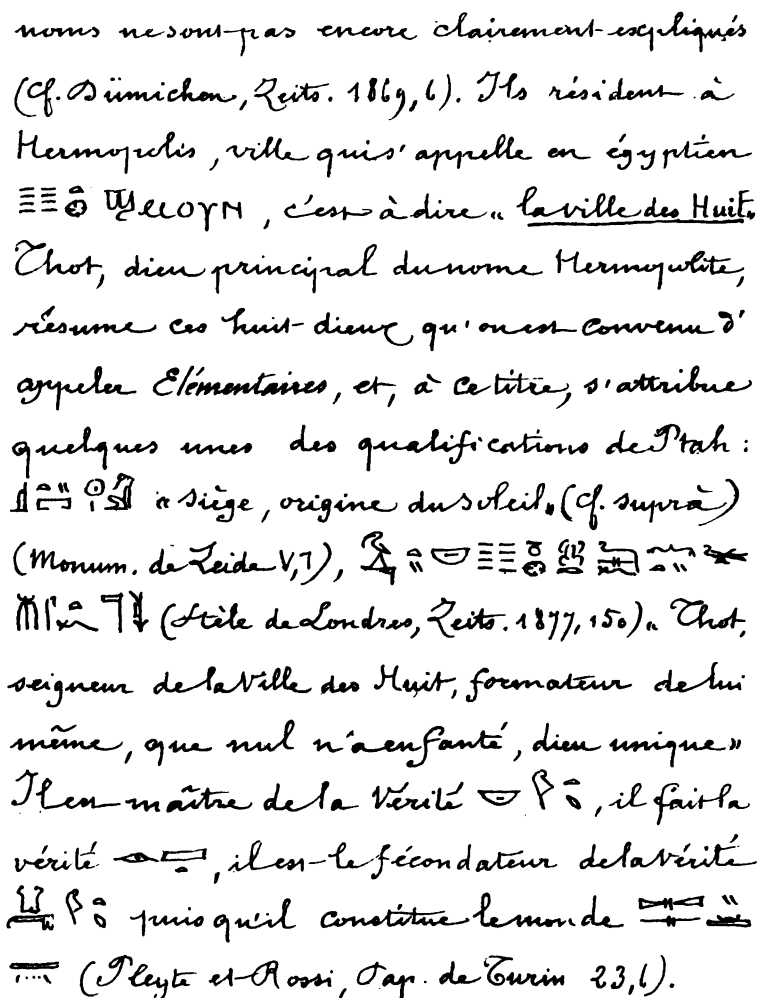 noms ne sont pas encore clairement expliqués
(Cf. Dümichen, Zeits. 1869, 6). Ils résident à
Hermopolis, ville qui s'appelle en égyptien
ϢⲘⲞⲨⲚ, c'est à dire « la ville des Huit »
Thot, dieu principal du nome Hermopolite,
résume ces huit dieux qu'on est convenu d'
appeler Elémentaires, et, à ce titre, s'attribue
quelques unes des qualifications de Ptah :
« siège, origine du soleil » (Cf. suprà)
(Monum. de Leide V, 7),
(Stèle de Londres, Zeits. 1877, 150) « Thot,
seigneur de la Ville des Huit, formateur de lui
même, que nul n'a enfanté, dieu unique »
Il est maître de la Vérité, il fait la
vérité, il est le fécondateur de la vérité
puisqu'il constitue le monde
(Pleyte et Rossi, Pap. de Turin 23, 6).